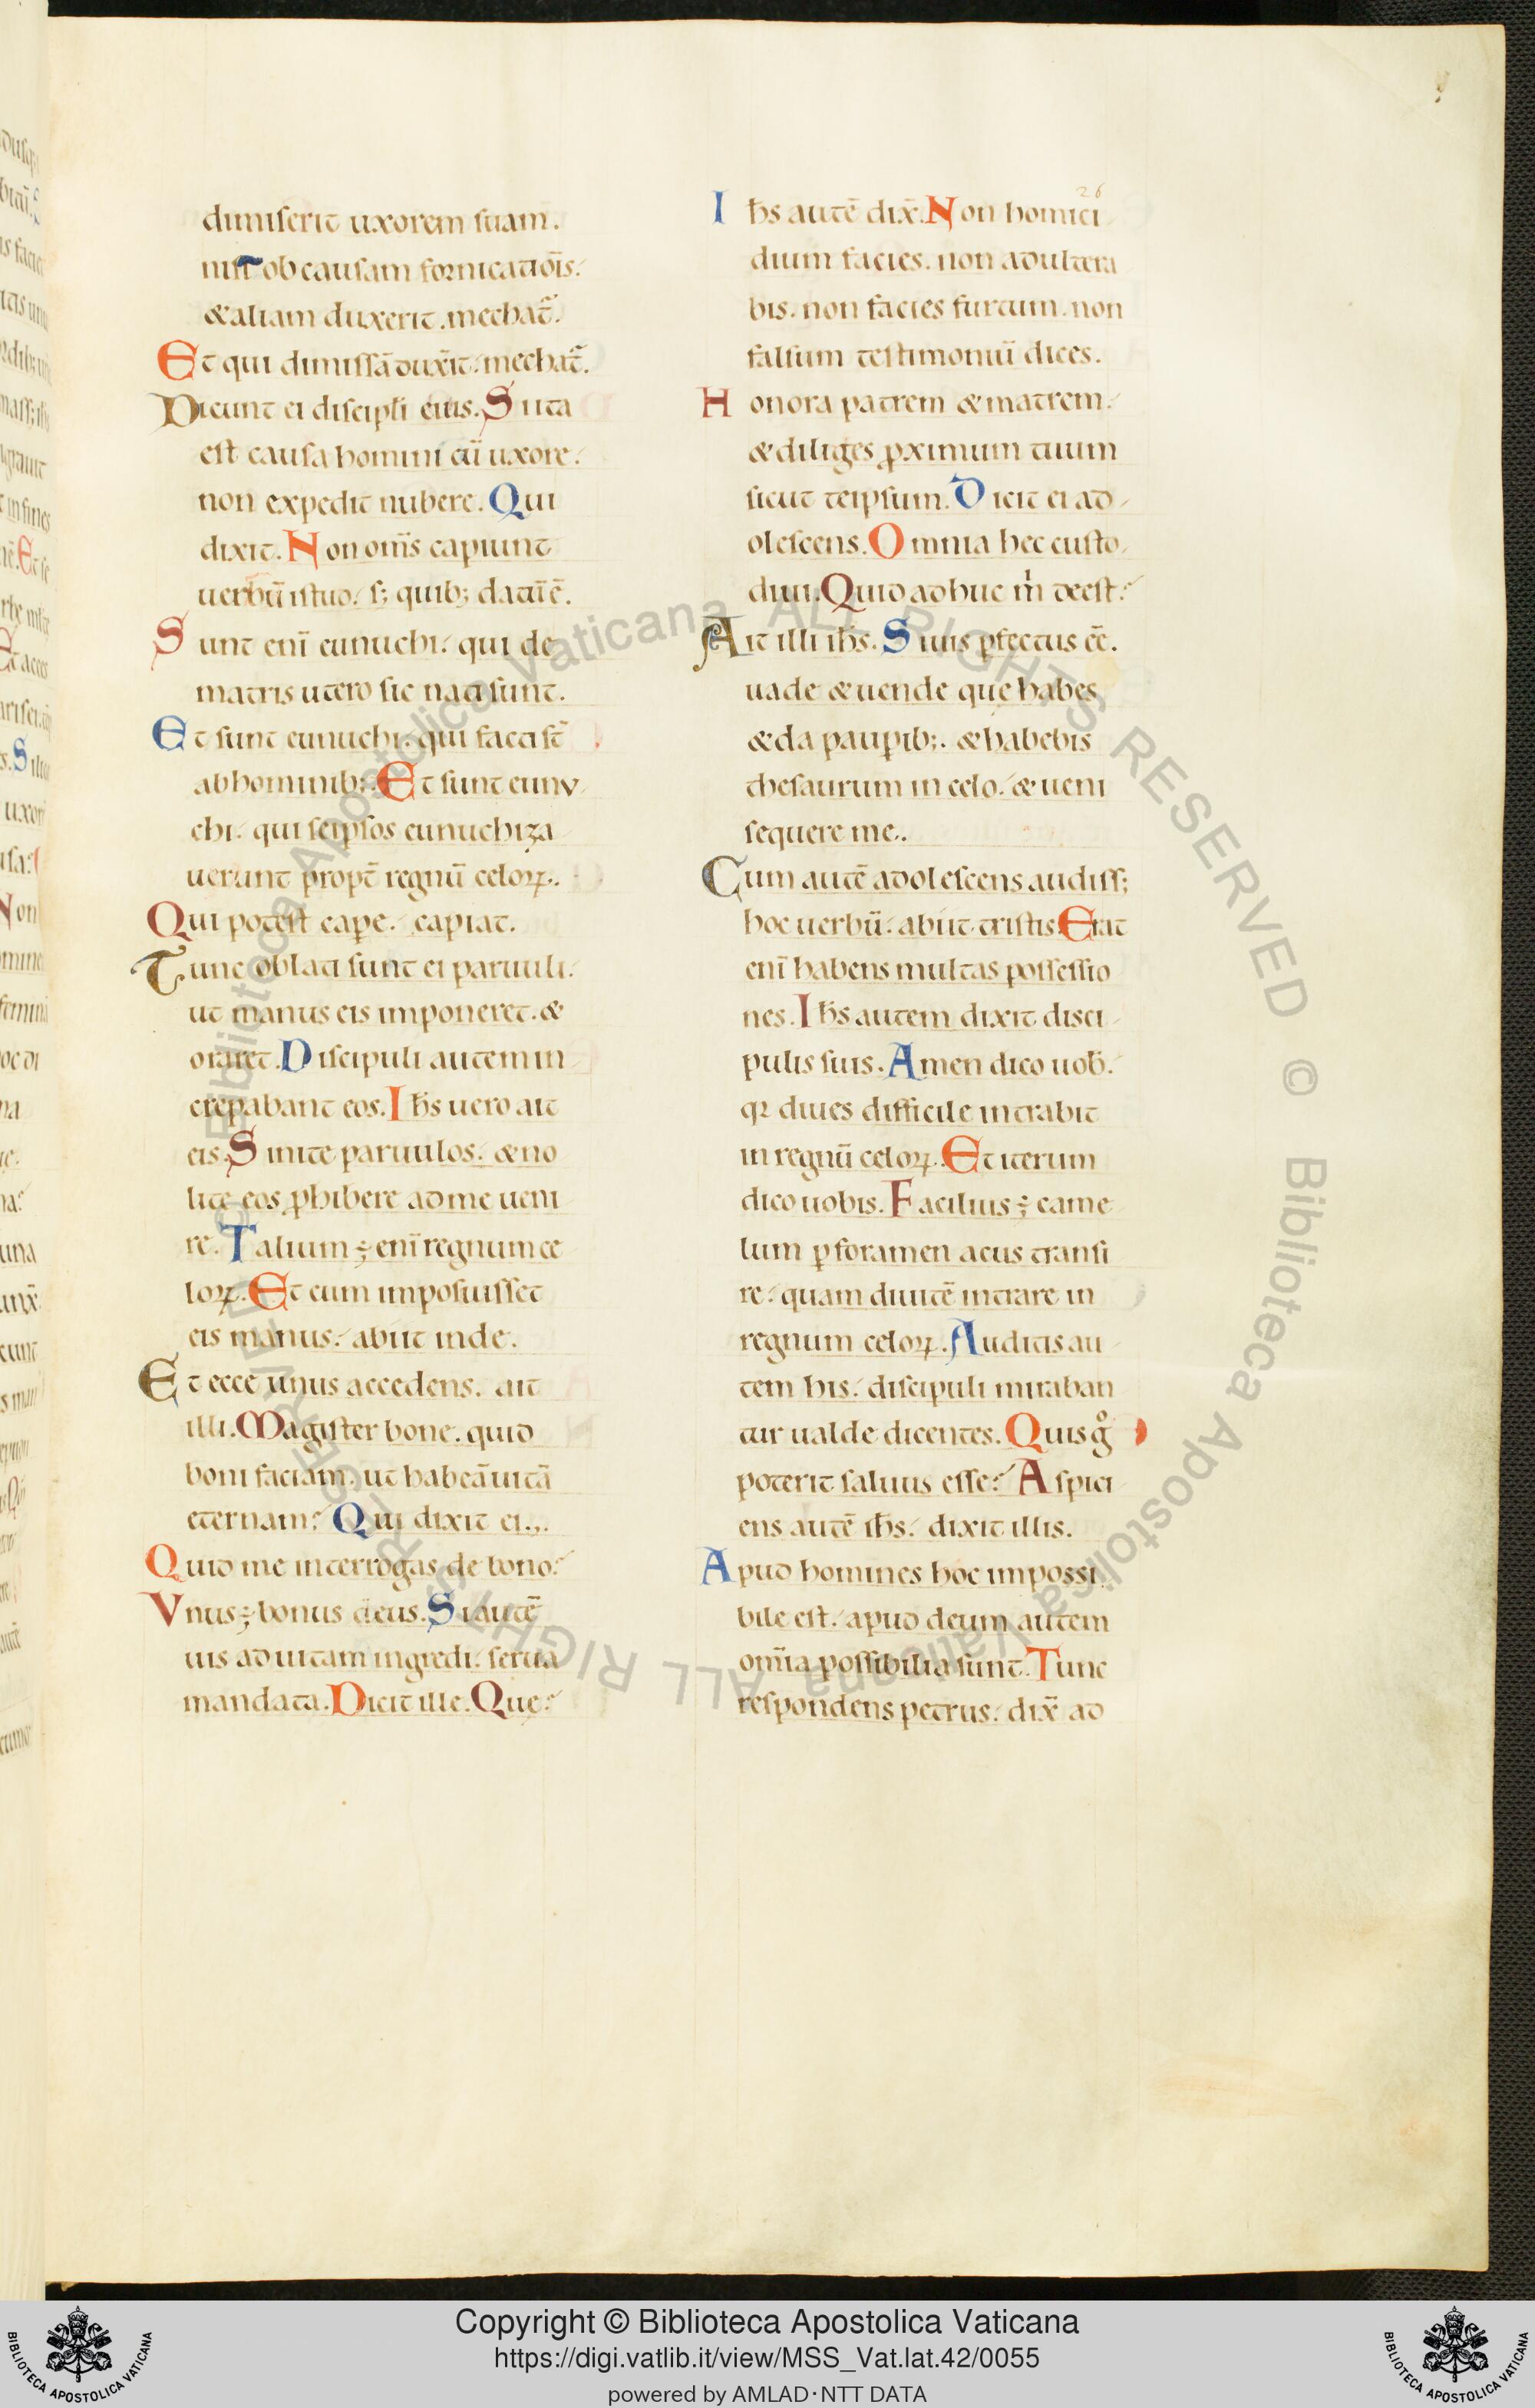 dimiserit uxorem suam.
nisi ob causam fornicatiõis.
& aliam duxerit. mechat᷑.
Et qui dimissã dux̃it. mechat᷑.
Dicunt ei discipli eius. Si ita
est causa homini cũ uxore.
non expedit nubere. Qui
dixit. Non om̃s capiunt
uerbũ istud. s; quib; datũ ẽ.
Sunt eni̅ eunuchi. qui de
matris utero sic nati sunt.
Et sunt eunuchi. qui facti st̃
ab hominib;. Et sunt eunu
chi. qui seipsos eunuchiza
uerunt propt̃ regnũ celoꝝ.
Qui potest caꝑe. capiat.
Tunc oblati sunt ei paruuli.
ut manus eis imponeret. &
oraret. Discipuli autem in
crepabant eos. Ihs̅ uero ait
eis. Sinite paruulos. & no
lite eos ꝓhibere ad me ueni
re. Talium ÷ eni̅ regnum ce
loꝝ. Et cum imposuisset
eis manus. abiit inde.
Et ecce unus accedens. ait
illi. Magister bone. quid
boni faciam. ut habeã uitã
eternam? Qui dixit ei.
Quid me interrogas de bono?
Vnus ÷ bonus deus. Si autẽ
uis ad uitam ingredi. serua
mandata. Dicit ille. Que?
26
Ihs̅ autẽ dix̃. Non homici
dium facies. non adultera
bis. non facies furtum. non
falsum testimoniũ dices.
Honora patrem & matrem.
& diliges ꝓximum tuum
sicut teipsum. Dicit ei ad
olescens. Omnia hec custo
diui. Quid adhuc m̍ deest?
Ait illi ihs̅. Si uis ꝑfectus eẽ.
uade & uende que habes
& da pauꝑib;. & habebis
thesaurum in celo. & ueni
sequere me.
Cum autẽ adolescens audiss;
hoc uerbũ. abiit tristis. Erat
eni̅ habens multas possessio
nes. Ihs̅ autem dixit disci
pulis suis. Amen dico uob̅.
qꝛ diues difficile intrabit
in regnũ celoꝝ. Et iterum
dico uobis. Facilius ÷ came
lum ꝑ foramen acus transi
re. quam diuitẽ intrare in
regnum celoꝝ. Auditis au
tem his. discipuli miraban
tur ualde dicentes. Quis gͦ
poterit saluus esse? Aspici
ens autẽ ihs̅. dixit illis.
Apud homines hoc impossi
bile est. apud deum autem
om̃ia possibilia sunt. Tunc
respondens petrus. dix̃ ad
Copyright © Biblioteca Apostolica Vaticana
https://digi.vatlib.it/view/MSS_Vat.lat.42/0055
powered by AMLAD·NTT DATA
BIBLIOTECA APOSTOLICA VATICANA
BIBLIOTECA APOSTOLICA VATICANA
© Biblioteca Apostolica Vaticana ALL RIGHTS RESERVED © Biblioteca Apostolica Vaticana ALL RIGHTS RESERVED